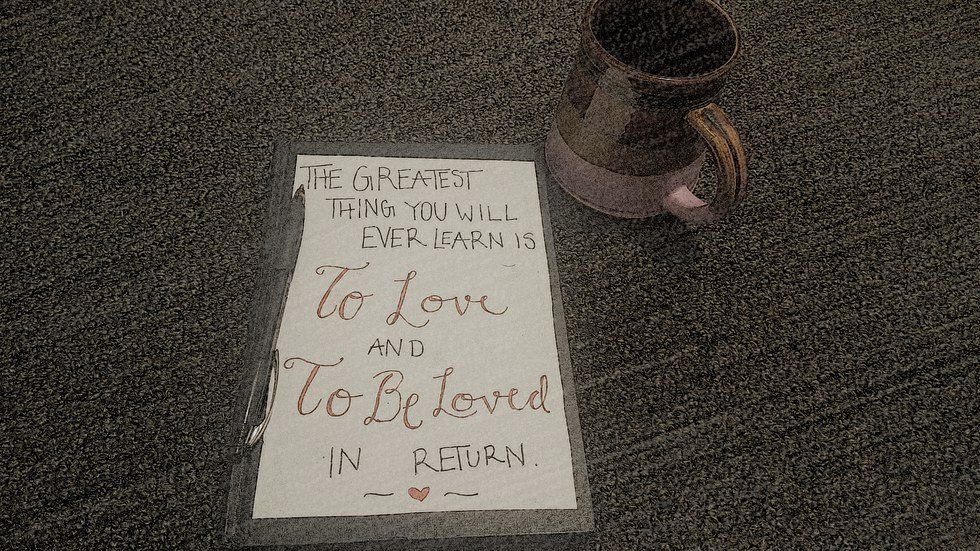 THE GREATEST
THING YOU WILL
EVER LEARN IS
To Love
AND
To Be Loved
IN RETURN.